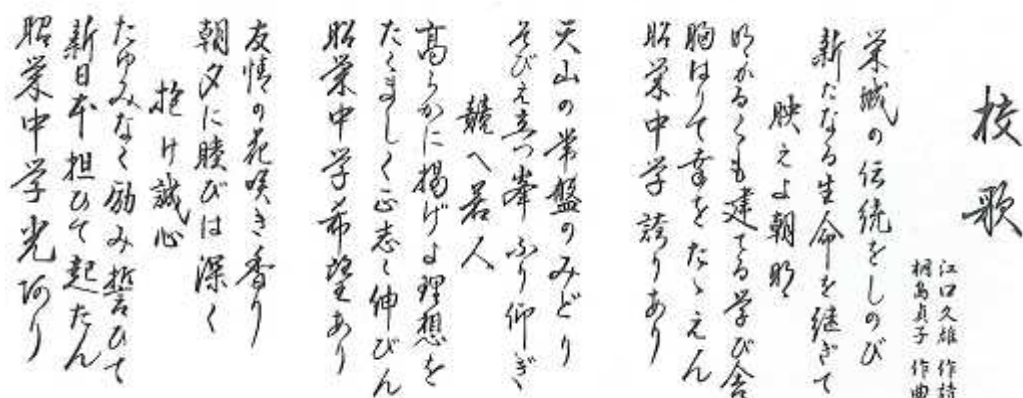 校歌
江口久雄 作詩
桐島貞子 作曲
栄城の伝統をしのび
新たなる生命を継ぎて
映えよ朝明
明かるくも建てる学び舎
胸はりて幸をたゝえん
昭栄中学誇りあり
天山の常盤のみどり
そびえ立つ峯ふり仰ぎ
競へ若人
高らかに揚げよ理想を
たくましく正志く伸びん
昭栄中学希望あり
友情の花咲き香り
朝夕に睦びは深く
抱け誠心
たゆみなく励み誓ひて
新日本担ひて起たん
昭栄中学光あり